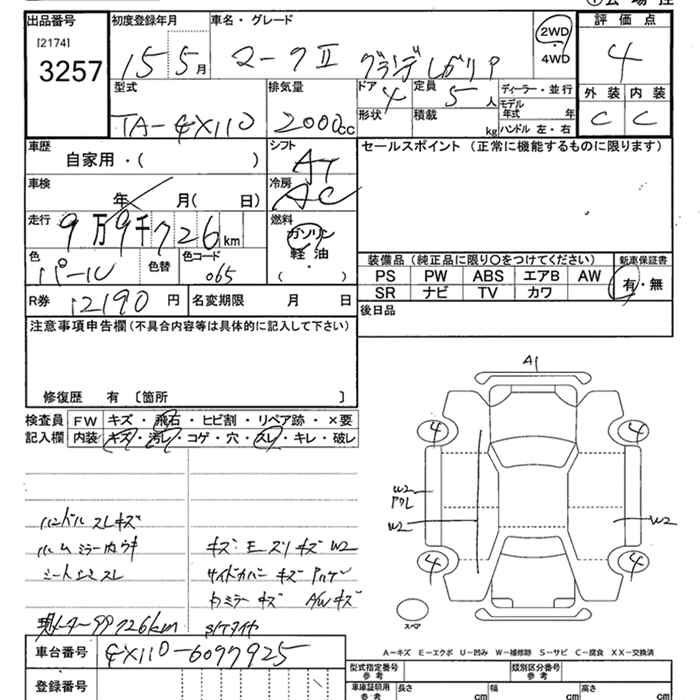 出品番号 初度登録年月 車名・グレード 2WD 4WD 評価点
[2174]
3257 15 5月 マークⅡ グランデ 4
型式 排気量 ドア 4 定員 5人 ディーラー・並行 外装 内装
形状 積載 kg モデル年式 年 C C
TA-GX110 2000cc ハンドル 左・右
車歴 シフト セールスポイント (正常に機能するものに限ります)
自家用・( ) AT
車検 冷房
年 月( 日) AC
走行 燃料
9万9千726km ガソリン
色 色替 色コード 軽油 装備品 (純正品に限り○をつけてください) 新車保証書
パール 065 ( ) PS PW ABS エアB AW 有・無
R券 12190円 名変期限 月 日 SR ナビ TV カワ
注意事項申告欄 (不具合内容等は具体的に記入して下さい) 後日品
修復歴 有 [箇所 ]
検査員 FW キズ・飛石・ヒビ割・リペア跡・×要
記入欄 内装 キズ・汚レ・コゲ・穴・スレ・キレ・破レ
A1
4 4
W2
W2 W2
4 4
スペア
ハンドル スレキズ
ルームミラー内ウキ
W2
サイドカバー キズ
ミラーキズ AWキズ
現メーター99726km
車台番号 GX110-6097925
登録番号
A-キズ E-エクボ U-凹み W-補修跡 S-サビ C-腐食 XX-交換済
型式指定番号 参考 類別区分番号 参考
車庫証明用 参考 長さ cm 幅 cm 高さ cm